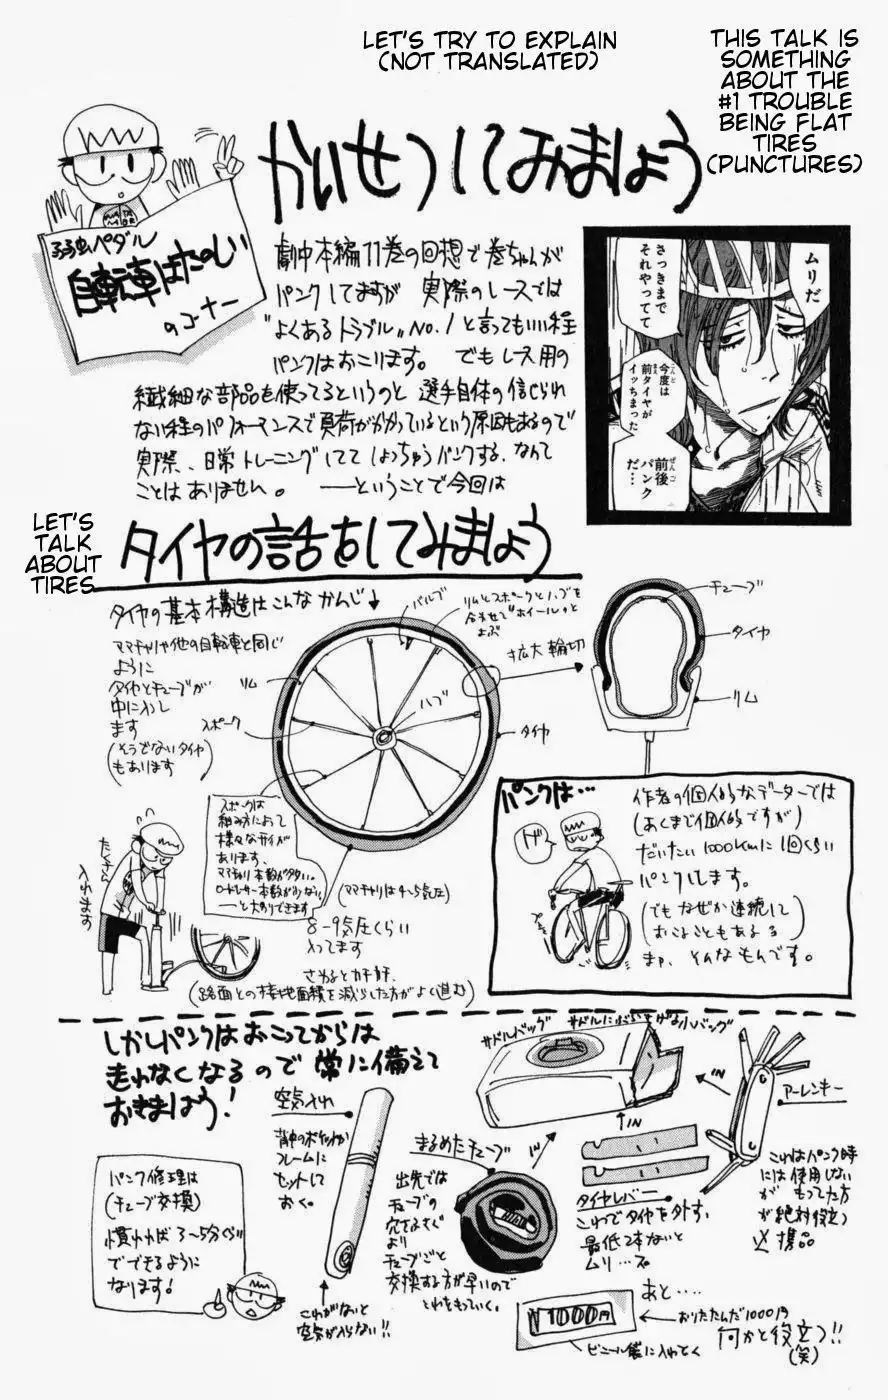 LET'S TRY TO EXPLAIN
(NOT TRANSLATED)
THIS TALK IS
SOMETHING
ABOUT THE
#1 TROUBLE
BEING FLAT
TIRES
(PUNCTURES)
かいせつしてみましょう
弱虫ペダル
自転車はたのしい
のコーナー
劇中本編11巻の回想で巻ちゃんが
パンクしてますが 実際のレースでは
"よくあるトラブル"NO.1と言ってもいい程
パンクはおこります。 でもレース用の
繊細な部品を使ってるというのと 選手自体の信じられ
ない程のパフォーマンスで負荷がかかっているという原因もあるので
実際、日常トレーニングしてて しょっちゅうパンクする、なんて
ことはありません。 ――ということで今回は
ムリだ
さっきまで
それやってて
今度は
前タイヤが
イッちまった
前後
パンク
だ…
LET'S
TALK
ABOUT
TIRES
タイヤの話をしてみましょう
タイヤの基本構造はこんなかんじ↓
ママチャリや他の自転車と同じ
ように
タイヤとチューブが
中に入っし
ます
(そうでないタイヤ
もあります)
リム
スポーク
バルブ
リムとスポークとハブを
合わせて"ホイール"と
よぶ
ハブ
タイヤ
拡大輪切
チューブ
タイヤ
リム
スポークは
組み方によって
様々なサイがあ
あります、
ママチャリ本数が多い。
ロードレーサー本数が少ない
(ママチャリは4~5気圧)
8-9気圧くらい
入ってます
さわるとカチカチ、
(路面との接地面積を減らした方がよく進む)
入れます
パンクは…
作者の個人的なデーターでは
(あくまで個人的ですが)
だいたい1000kmに1回くらい
パンクします。
(でもなぜか連続して
おこることもある)
まぁ、そんなもんです。
ゲ
しかしパンクはおこってからは
走れなくなるので常に備えて
おきましょう!
パンク修理は
(チューブ交換)
慣れれば3~5分ぐらい
でできるように
なります!
空気入れ
背中のポケットか
フレームに
セットして
おく。
これがないと
空気が入らない!!
まるめたチューブ
出先では
チューブの
穴をふさぐ
より
チューブごと
交換する方が早いので
これをもっていく。
サドルバッグ
サドルにぶらさげる小バッグ
IN
IN
IN
タイヤレバー
これでタイヤを外す、
最低2本ないと
ムリ…
アーレンキー
これはパンク時
には使用しない
が もってた方
が絶対役立つ
必携品
あと....
¥1000円
おりたたんだ1000円
何かと役立つ!!
(笑)
ビニール袋に入れとく